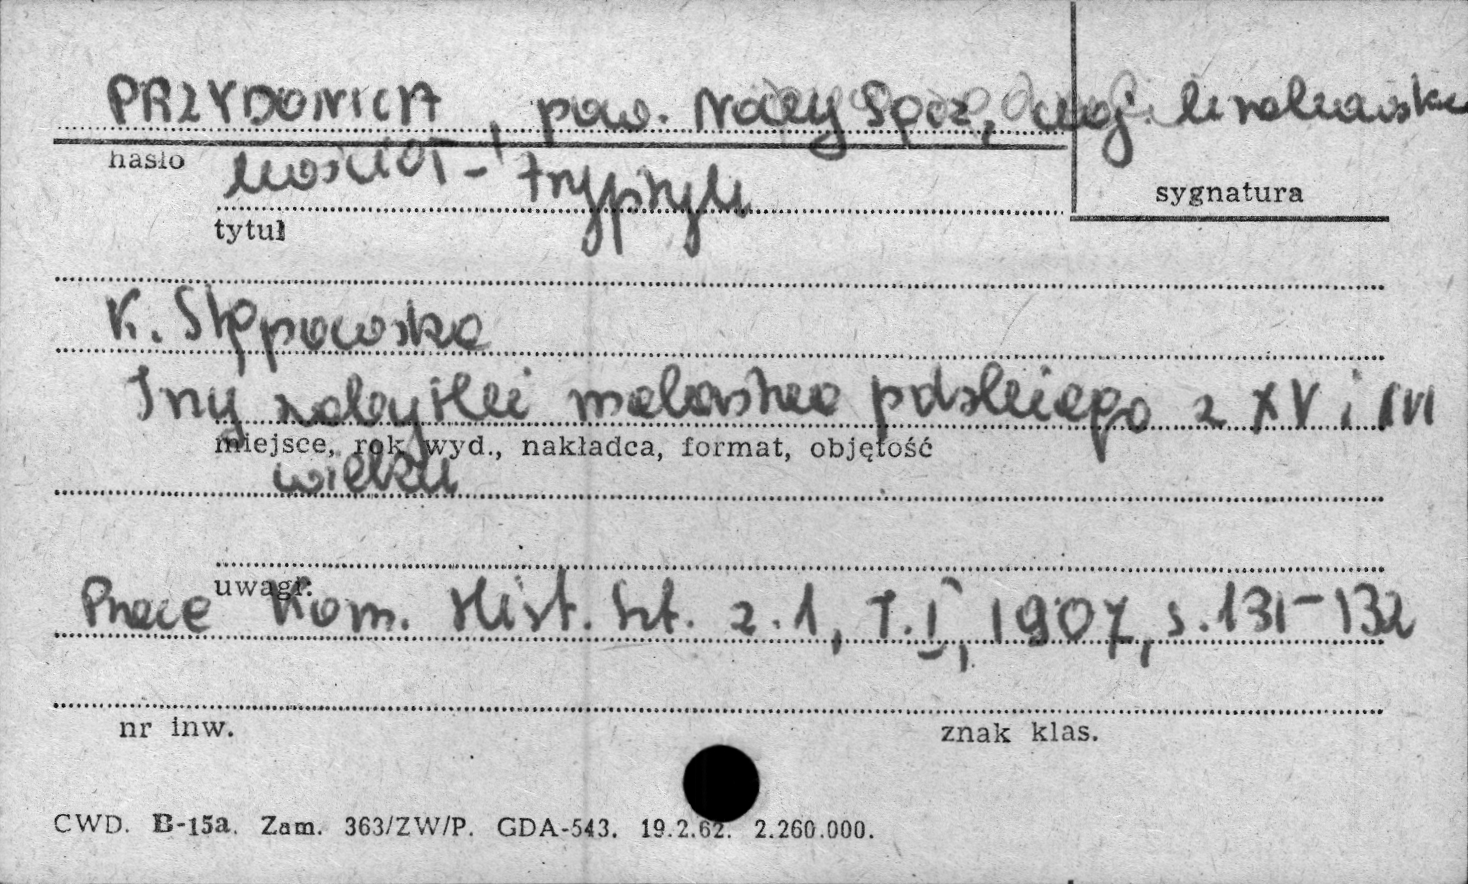 PRZYDONICA, pow. Nowy Sącz, woj. krakowskie
hasło
kościół - tryptyk
sygnatura
tytuł
K. Stępowska
Trzy zabytki malarstwa polskiego z XV i XVI
miejsce, rok wyd., nakładca, format, objętość
wieku
uwagi:
Prace Kom. Hist. Szt. z. 1, T. I, 1907, s. 131-132
nr inw.
znak klas.
CWD. B-15a. Zam. 363/ZW/P. GDA-543. 19.2.62. 2.260.000.